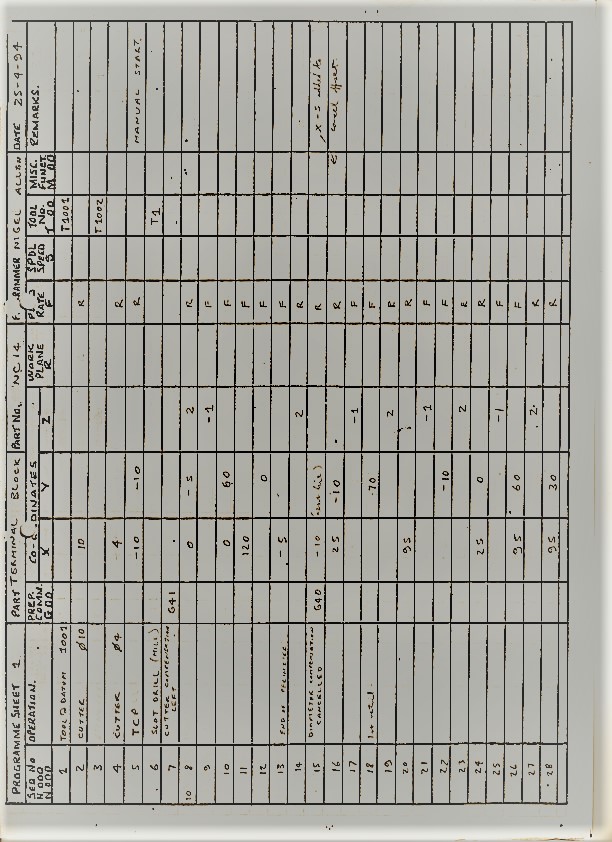 PROGRAMME SHEET 1 PART TERMINAL BLOCK PART No. NC14 RAMMER NIGEL ALLEN DATE 25-4-94
SEQ No N000 OPERATION. PREP. COMN. G00 CO-ORDINATES X Y Z WORK PLANE R RATE F SPDL SPEED S TOOL No. T00 MISC. FUNCT. M00 REMARKS.
1 TOOL DATUM 1001 T1001
2 CUTTER Ø10 10 R
3 T1002
4 CUTTER Ø4 4 R
5 TCP -10 -10 R MANUAL START.
6 SLOT DRILL (MILL) T1
7 CUTTER COMPENSATION LEFT G41
10 8 0 -5 2 R
9 -1 F
10 0 60 F
11 120 F
12 0 F
13 END OF -5 F
14 2 R
15 DIAMETER COMPENSATION CANCELLED G40 -10 R X-5 added to
16 25 -10 R cancel
17 -1 F
18 1st 70 F
19 2 R
20 95 R
21 -1 F
22 -10 F
23 2 R
24 25 0 R
25 -1 F
26 95 60 F
27 2 R
28 95 30 R